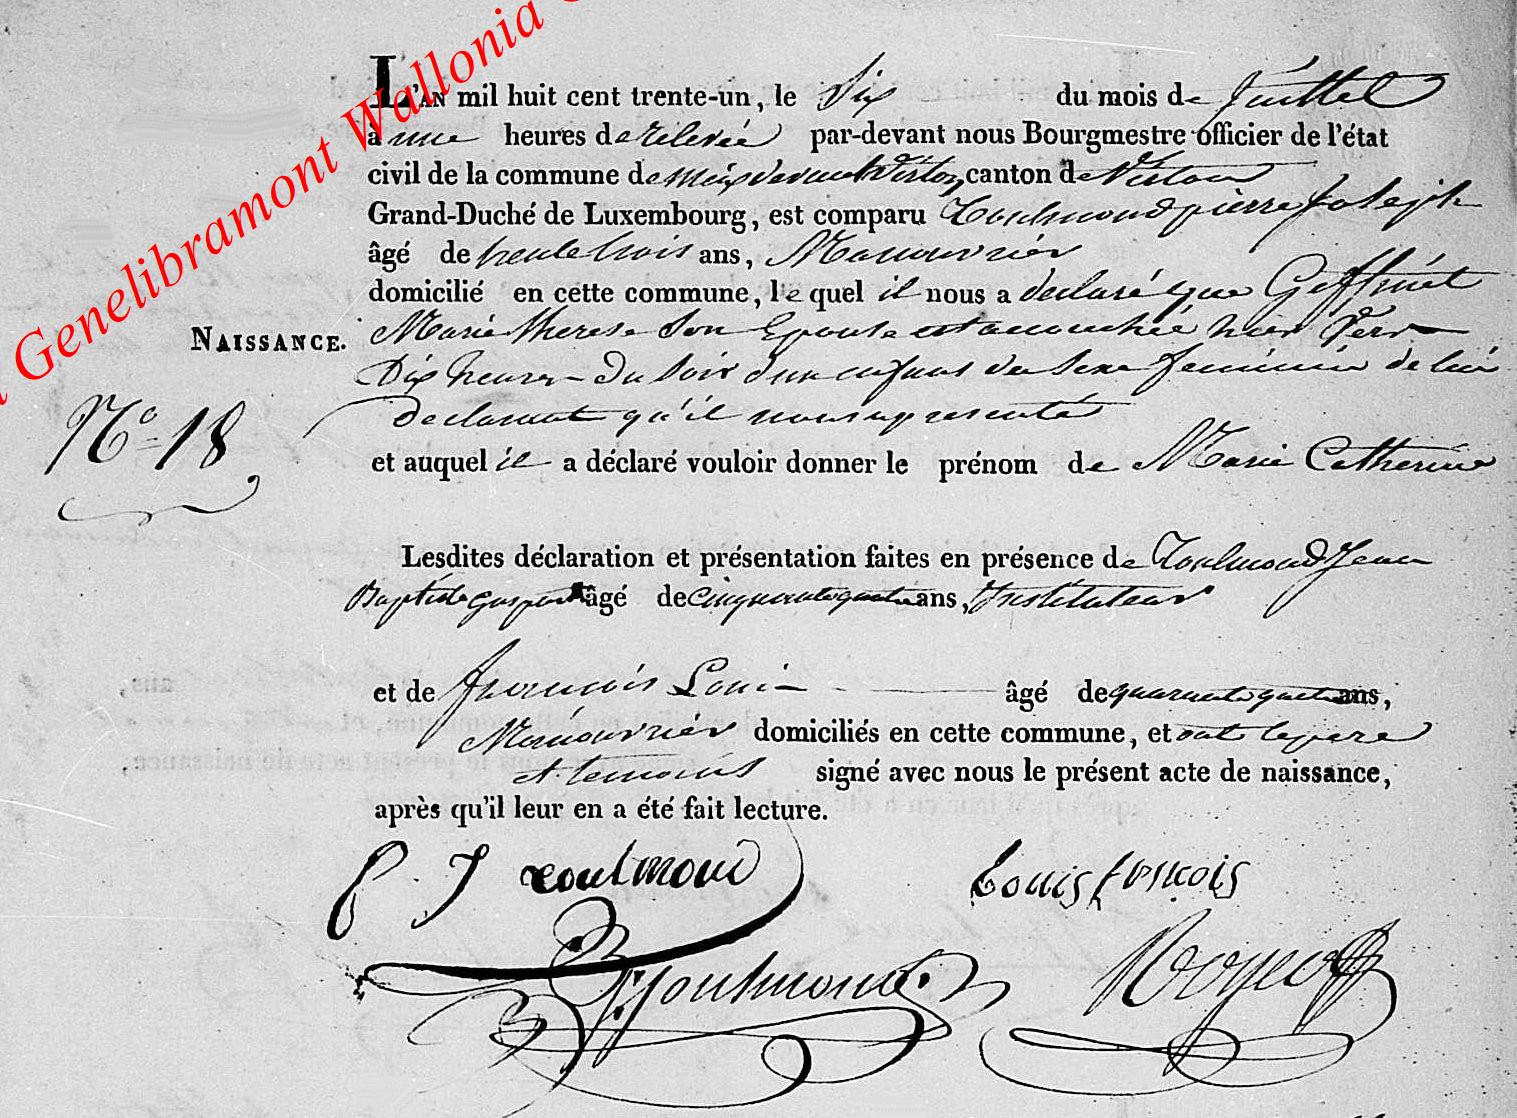 Genelibramont Wallonia
L'AN mil huit cent trente-un, le Six du mois de Juillet
à une heures de relevée par-devant nous Bourgmestre officier de l'état
civil de la commune de Meix devant Virton, canton de Virton
Grand-Duché de Luxembourg, est comparu Toulmond pierre Joseph
âgé de trente trois ans, Manouvrier
domicilié en cette commune, le quel il nous a declaré que Goffinet
NAISSANCE. Marie therese Son Epouse est accouchée hier Vers
Dix heures du Soir d'un enfant du Sexe feminin de lui
N° 18 declarant qu'il nous a presenté
et auquel il a déclaré vouloir donner le prénom de Marie Catherine
Lesdites déclaration et présentation faites en présence de Toulmond Jean
Baptiste Gaspard âgé de cinquante quatre ans, Instituteur
et de francois Louis âgé de quarante quatre ans,
Manouvrier domiciliés en cette commune, et ont le pere
et temoins signé avec nous le présent acte de naissance,
après qu'il leur en a été fait lecture.
P. J toulmond Louis francois
Toulmond